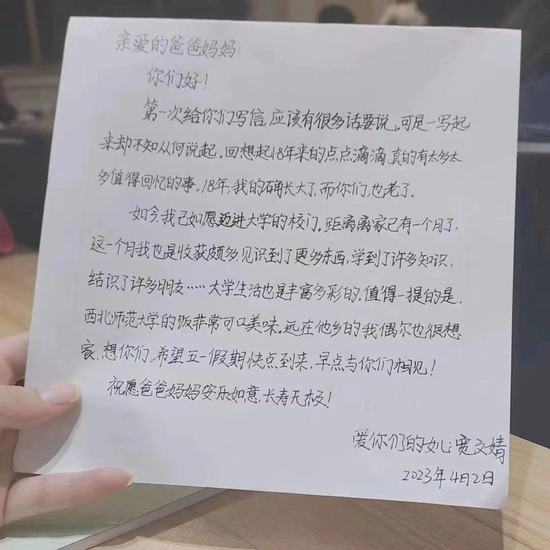 亲爱的爸爸妈妈:
你们好!
第一次给你们写信,应该有很多话要说,可是一写起
来却不知从何说起,回想起18年来的点点滴滴,真的有太多太
多值得回忆的事。18年,我的确长大了,而你们,也老了。
如今,我已如愿迈进大学的校门。距离离家已有一个月了,
这一个月我也是收获颇多,见识到了更多东西,学到了许多知识,
结识了许多朋友……大学生活也是丰富多彩的。值得一提的是,
西北师范大学的饭非常可口美味。远在他乡的我偶尔也很想
家、想你们,希望五一假期快点到来,早点与你们相见!
祝愿爸爸妈妈安乐如意,长寿无极!
爱你们的女儿:文婧
2023年4月2日